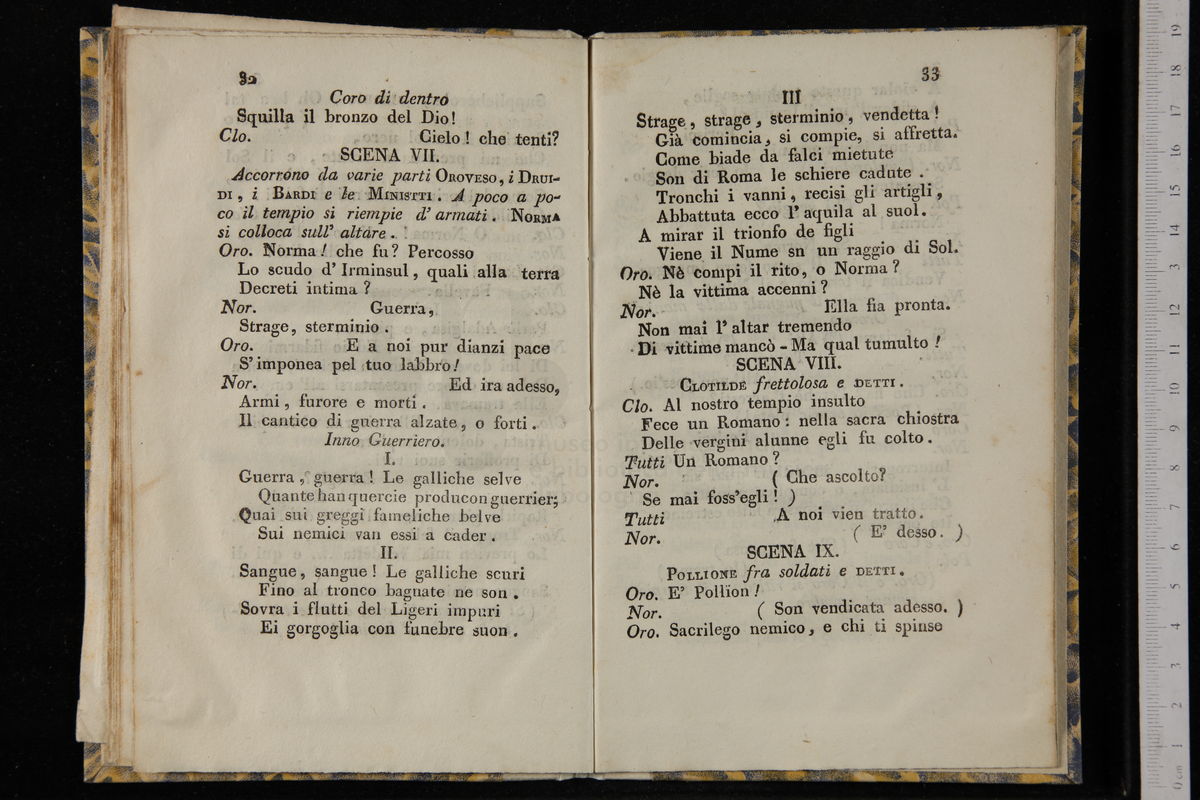 32
Coro di dentro
Squilla il bronzo del Dio!
Clo. Cielo! che tenti?
SCENA VII.
Accorrono da varie parti OROVESO, i DRUI-
DI, i BARDI e le MINISTTI. A poco a po-
co il tempio si riempie d' armati. NORMA
si colloca sull' altare.
Oro. Norma! che fu? Percosso
Lo scudo d' Irminsul, quali alla terra
Decreti intima?
Nor. Guerra,
Strage, sterminio.
Oro. E a noi pur dianzi pace
S' imponea pel tuo labbro!
Nor. Ed ira adesso,
Armi, furore e morti.
Il cantico di guerra alzate, o forti.
Inno Guerriero.
I.
Guerra, guerra! Le galliche selve
Quante han quercie producon guerrier;
Quai sui greggi fameliche belve
Sui nemici van essi a cader.
II.
Sangue, sangue! Le galliche scuri
Fino al tronco bagnate ne son.
Sovra i flutti del Ligeri impuri
Ei gorgoglia con funebre suon.
33
III
Strage, strage, sterminio, vendetta!
Già comincia, si compie, si affretta.
Come biade da falci mietute
Son di Roma le schiere cadute.
Tronchi i vanni, recisi gli artigli,
Abbattuta ecco l' aquila al suol.
A mirar il trionfo de' figli
Viene il Nume sn un raggio di Sol.
Oro. Nè compi il rito, o Norma?
Nè la vittima accenni?
Nor. Ella fia pronta.
Non mai l' altar tremendo
Di vittime mancò - Ma qual tumulto!
SCENA VIII.
CLOTILDE frettolosa e DETTI.
Clo. Al nostro tempio insulto
Fece un Romano: nella sacra chiostra
Delle vergini alunne egli fu colto.
Tutti Un Romano?
Nor. ( Che ascolto?
Se mai foss'egli! )
Tutti A noi vien tratto.
Nor. ( E' desso. )
SCENA IX.
POLLIONE fra soldati e DETTI.
Oro. E' Pollion!
Nor. ( Son vendicata adesso. )
Oro. Sacrilego nemico, e chi ti spinse
0 cm 1 2 3 4 5 6 7 8 9 10 11 12 13 14 15 16 17 18 19